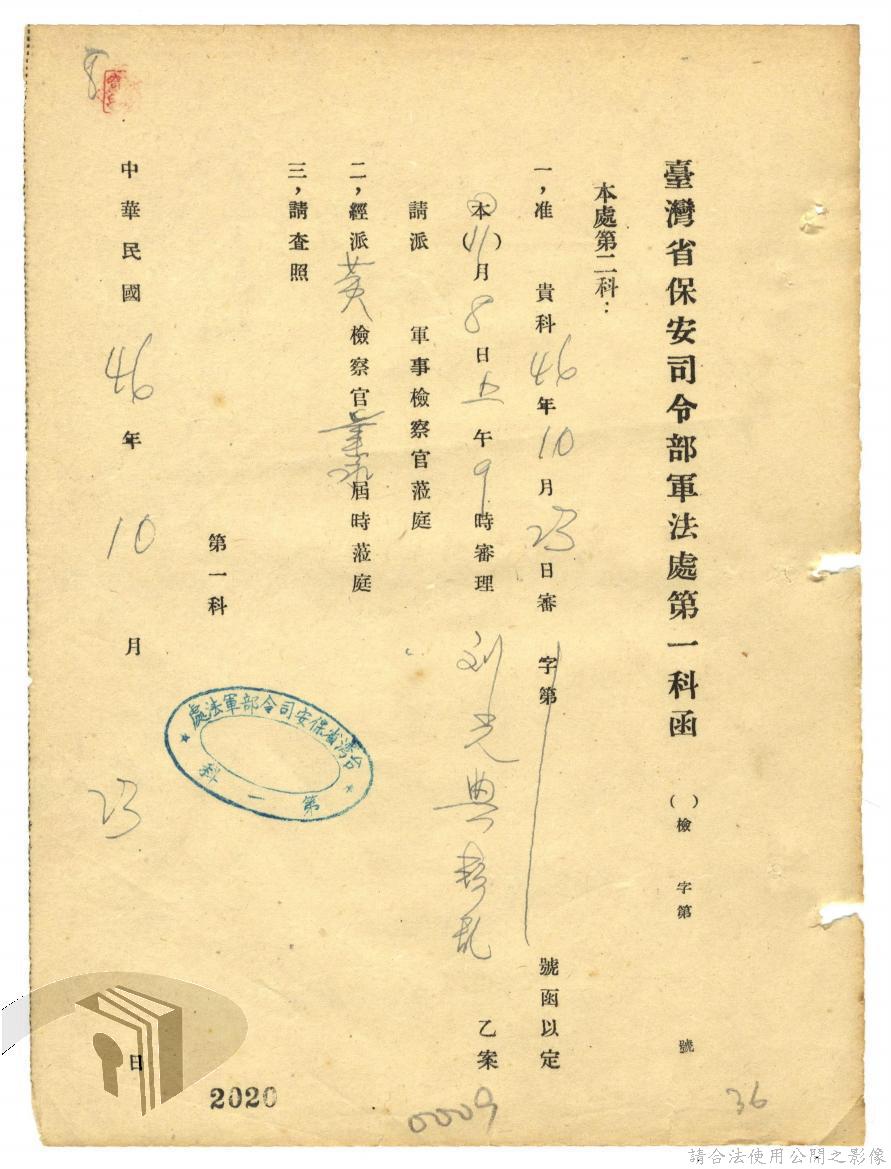 臺灣省保安司令部軍法處第一科函 ( )檢 字第 號
本處第二科：
一，准 貴科46年10月23日審 字第 號函以定
本(11)月8日上午9時審理 刘光典叛乱 乙案
請派 軍事檢察官蒞庭
二，經派黃檢察官業永屆時蒞庭
三，請查照
第一科
台灣省保安司令部軍法處
第一科
中華民國46年10月23日
2020
0009
36
請合法使用公開之影像